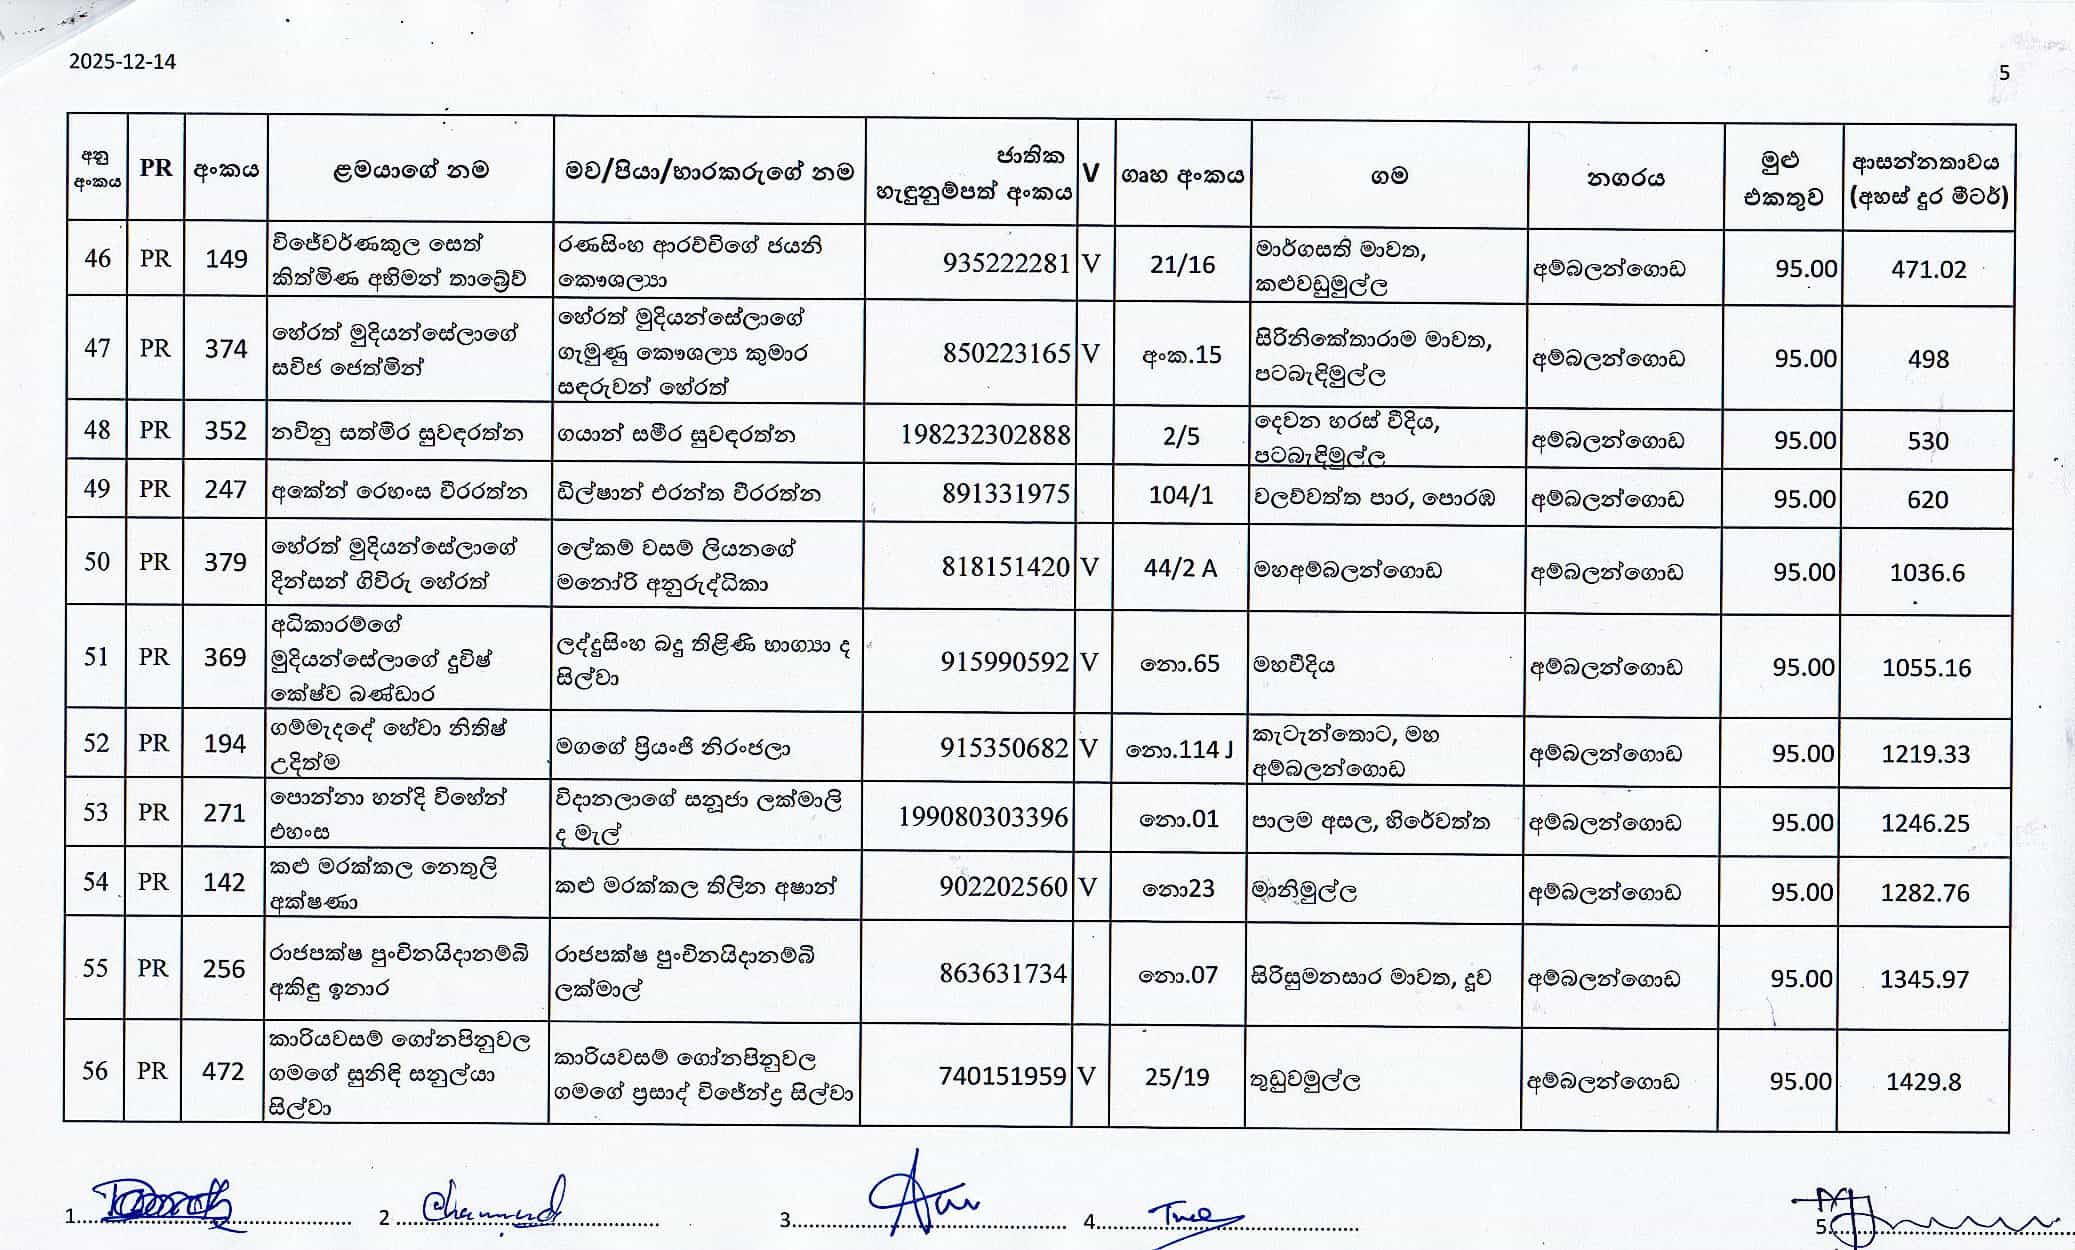 2025-12-14
5
අනු අංකය PR අංකය ළමයාගේ නම මව/පියා/භාරකරුගේ නම ජාතික හැඳුනුම්පත් අංකය V ගෘහ අංකය ගම නගරය මුළු එකතුව ආසන්නතාවය (අහස් දුර මීටර්)
46 PR 149 විජේවර්ණකුල සෙත් කිත්මිණ අභිමන් තාබ්‍රේව් රණසිංහ ආරච්චිගේ ජයනි කෞශල්‍යා 935222281 V 21/16 මාර්ගසති මාවත, කළුවඩුමුල්ල අම්බලන්ගොඩ 95.00 471.02
47 PR 374 හේරත් මුදියන්සේලාගේ සවිජ ජෙත්මින් හේරත් මුදියන්සේලාගේ ගැමුණු කෞශල්‍ය කුමාර සඳරුවන් හේරත් 850223165 V අංක.15 සිරිනිකේතාරාම මාවත, පටබැඳිමුල්ල අම්බලන්ගොඩ 95.00 498
48 PR 352 නවිනු සත්මිර සුවඳරත්න ගයාන් සමීර සුවඳරත්න 198232302888 2/5 දෙවන හරස් වීදිය, පටබැඳිමුල්ල අම්බලන්ගොඩ 95.00 530
49 PR 247 අකේන් රෙහංස වීරරත්න ඩිල්ෂාන් එරන්ත වීරරත්න 891331975 104/1 වලව්වත්ත පාර, පොරඹ අම්බලන්ගොඩ 95.00 620
50 PR 379 හේරත් මුදියන්සේලාගේ දින්සන් ගිවිරු හේරත් ලේකම් වසම් ලියනගේ මනෝරි අනුරුද්ධිකා 818151420 V 44/2 A මහඅම්බලන්ගොඩ අම්බලන්ගොඩ 95.00 1036.6
51 PR 369 අධිකාරම්ගේ මුදියන්සේලාගේ දුවිෂ් කේෂ්ව බණ්ඩාර ලද්දුසිංහ බදු තිළිණි භාග්‍යා ද සිල්වා 915990592 V නො.65 මහවීදිය අම්බලන්ගොඩ 95.00 1055.16
52 PR 194 ගම්මැදදේ හේවා නිතිෂ් උදිත්ම මගගේ ප්‍රියංජි නිරංජලා 915350682 V නො.114 J කැටැන්තොට, මහ අම්බලන්ගොඩ අම්බලන්ගොඩ 95.00 1219.33
53 PR 271 පොන්නා හන්දි විහේන් එහංස විදානලාගේ සනූජා ලක්මාලි ද මැල් 199080303396 නො.01 පාලම අසල, හිරේවත්ත අම්බලන්ගොඩ 95.00 1246.25
54 PR 142 කළු මරක්කල නෙතුලි අක්ෂණා කළු මරක්කල තිලින අෂාන් 902202560 V නො23 මානිමුල්ල අම්බලන්ගොඩ 95.00 1282.76
55 PR 256 රාජපක්ෂ පුංචිනයිදානම්බි අකිඳු ඉනාර රාජපක්ෂ පුංචිනයිදානම්බි ලක්මාල් 863631734 නො.07 සිරිසුමනසාර මාවත, දූව අම්බලන්ගොඩ 95.00 1345.97
56 PR 472 කාරියවසම් ගෝනපිනුවල ගමගේ සුනිඳි සනුල්යා සිල්වා කාරියවසම් ගෝනපිනුවල ගමගේ ප්‍රසාද් විජේන්ද්‍ර සිල්වා 740151959 V 25/19 තුඩුවමුල්ල අම්බලන්ගොඩ 95.00 1429.8
1 2 3 4 5